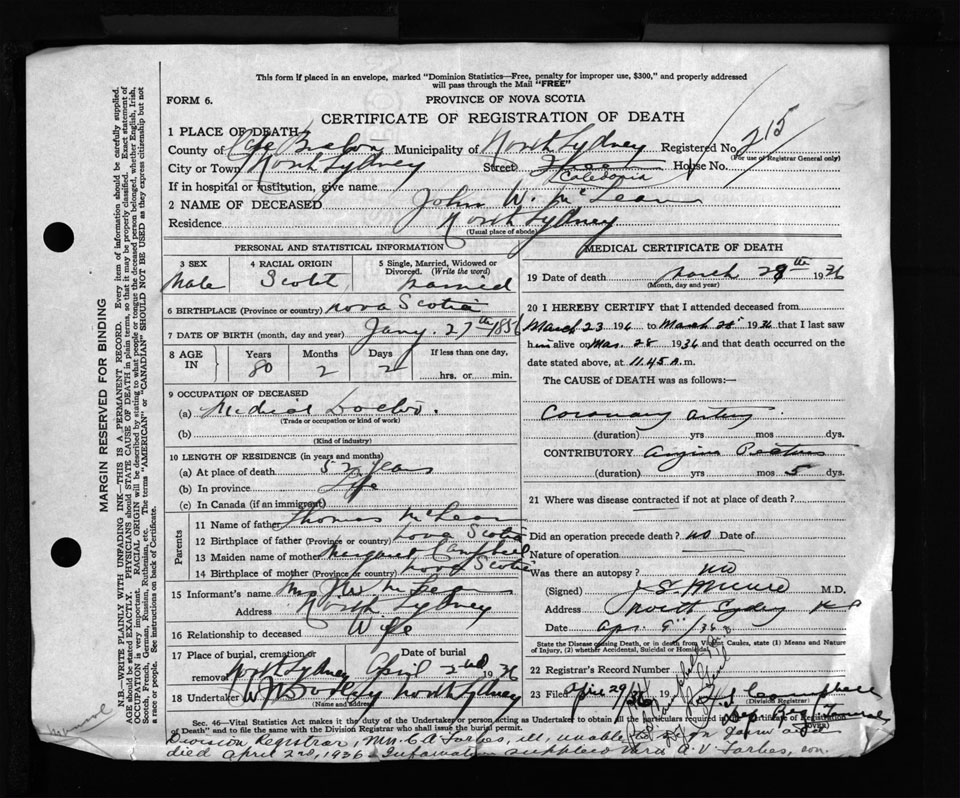 This form if placed in an envelope, marked "Dominion Statistics—Free, penalty for improper use, $300," and properly addressed
will pass through the Mail "FREE"
FORM 6.
PROVINCE OF NOVA SCOTIA
CERTIFICATE OF REGISTRATION OF DEATH
215
1 PLACE OF DEATH
County of Cape Breton Municipality of North Sydney Registered No.
(For use of Registrar General only)
City or Town North Sydney Street Caledonia House No.
If in hospital or institution, give name
2 NAME OF DECEASED John W. McLean
Residence North Sydney
(Usual place of abode)
PERSONAL AND STATISTICAL INFORMATION
3 SEX Male
4 RACIAL ORIGIN
5 Single, Married, Widowed or Divorced. (Write the word) Married
6 BIRTHPLACE (Province or country) Nova Scotia
7 DATE OF BIRTH (month, day and year) Jany. 27th 1856
8 AGE IN Years 80 Months 2 Days 2 If less than one day, hrs. or min.
9 OCCUPATION OF DECEASED
(a) Medical Doctor.
(Trade or occupation or kind of work)
(b)
(Kind of industry)
10 LENGTH OF RESIDENCE (in years and months)
(a) At place of death 52 years
(b) In province Life
(c) In Canada (if an immigrant)
Parents
11 Name of father Thomas McLean
12 Birthplace of father (Province or country) Nova Scotia
13 Maiden name of mother Margaret Campbell
14 Birthplace of mother (Province or country) Nova Scotia
15 Informant's name Mrs J W McLean
Address North Sydney
16 Relationship to deceased Wife
17 Place of burial, cremation or removal North Sydney Date of burial April 2nd 1936
18 Undertaker North Sydney
(Name and address)
MEDICAL CERTIFICATE OF DEATH
19 Date of death March 28th 1936
(Month, day and year)
20 I HEREBY CERTIFY that I attended deceased from
March 23 1936 to March 28" 1936 that I last saw
him alive on Mar. 28 1936 and that death occurred on the
date stated above, at 11.45 A.m.
The CAUSE of DEATH was as follows:—
Coronary artery
(duration) yrs mos dys.
CONTRIBUTORY Angina Pectoris
(duration) yrs mos 5 dys.
21 Where was disease contracted if not at place of death?
Did an operation precede death? no Date of
Nature of operation
Was there an autopsy? no
(Signed) M.D.
Address North Sydney N S
Date Apr. 9"/36
State the Disease causing Death, or in death from Violent Causes, state (1) Means and Nature
of Injury, (2) whether Accidental, Suicidal or Homicidal
22 Registrar's Record Number
23 Filed April 29/36 19 Campbell
(Division Registrar)
(over)
Sec. 46—Vital Statistics Act makes it the duty of the Undertaker or person acting as Undertaker to obtain all the particulars required in the "Certificate of Registration
of Death" and to file the same with the Division Registrar who shall issue the burial permit.
Division Registrar, Mrs. C A Forbes, ill, unable to sign form and
died April 2nd, 1936. Information supplied thru A. V. Forbes, son.
MARGIN RESERVED FOR BINDING
N. B.—WRITE PLAINLY WITH UNFADING INK—THIS IS A PERMANENT RECORD. Every item of information should be carefully supplied.
AGE should be stated EXACTLY. PHYSICIANS should STATE CAUSE OF DEATH in plain terms, so that it may be properly classified. Exact statement of
OCCUPATION is very important. RACIAL ORIGIN will be described by stating to what people or tongue the deceased person belonged, whether English, Irish,
Scotch, French, German, Russian, Ruthenian, etc. The terms "AMERICAN" or "CANADIAN" SHOULD NOT BE USED as they express citizenship but not
a race or people. See instructions on back of Certificate.